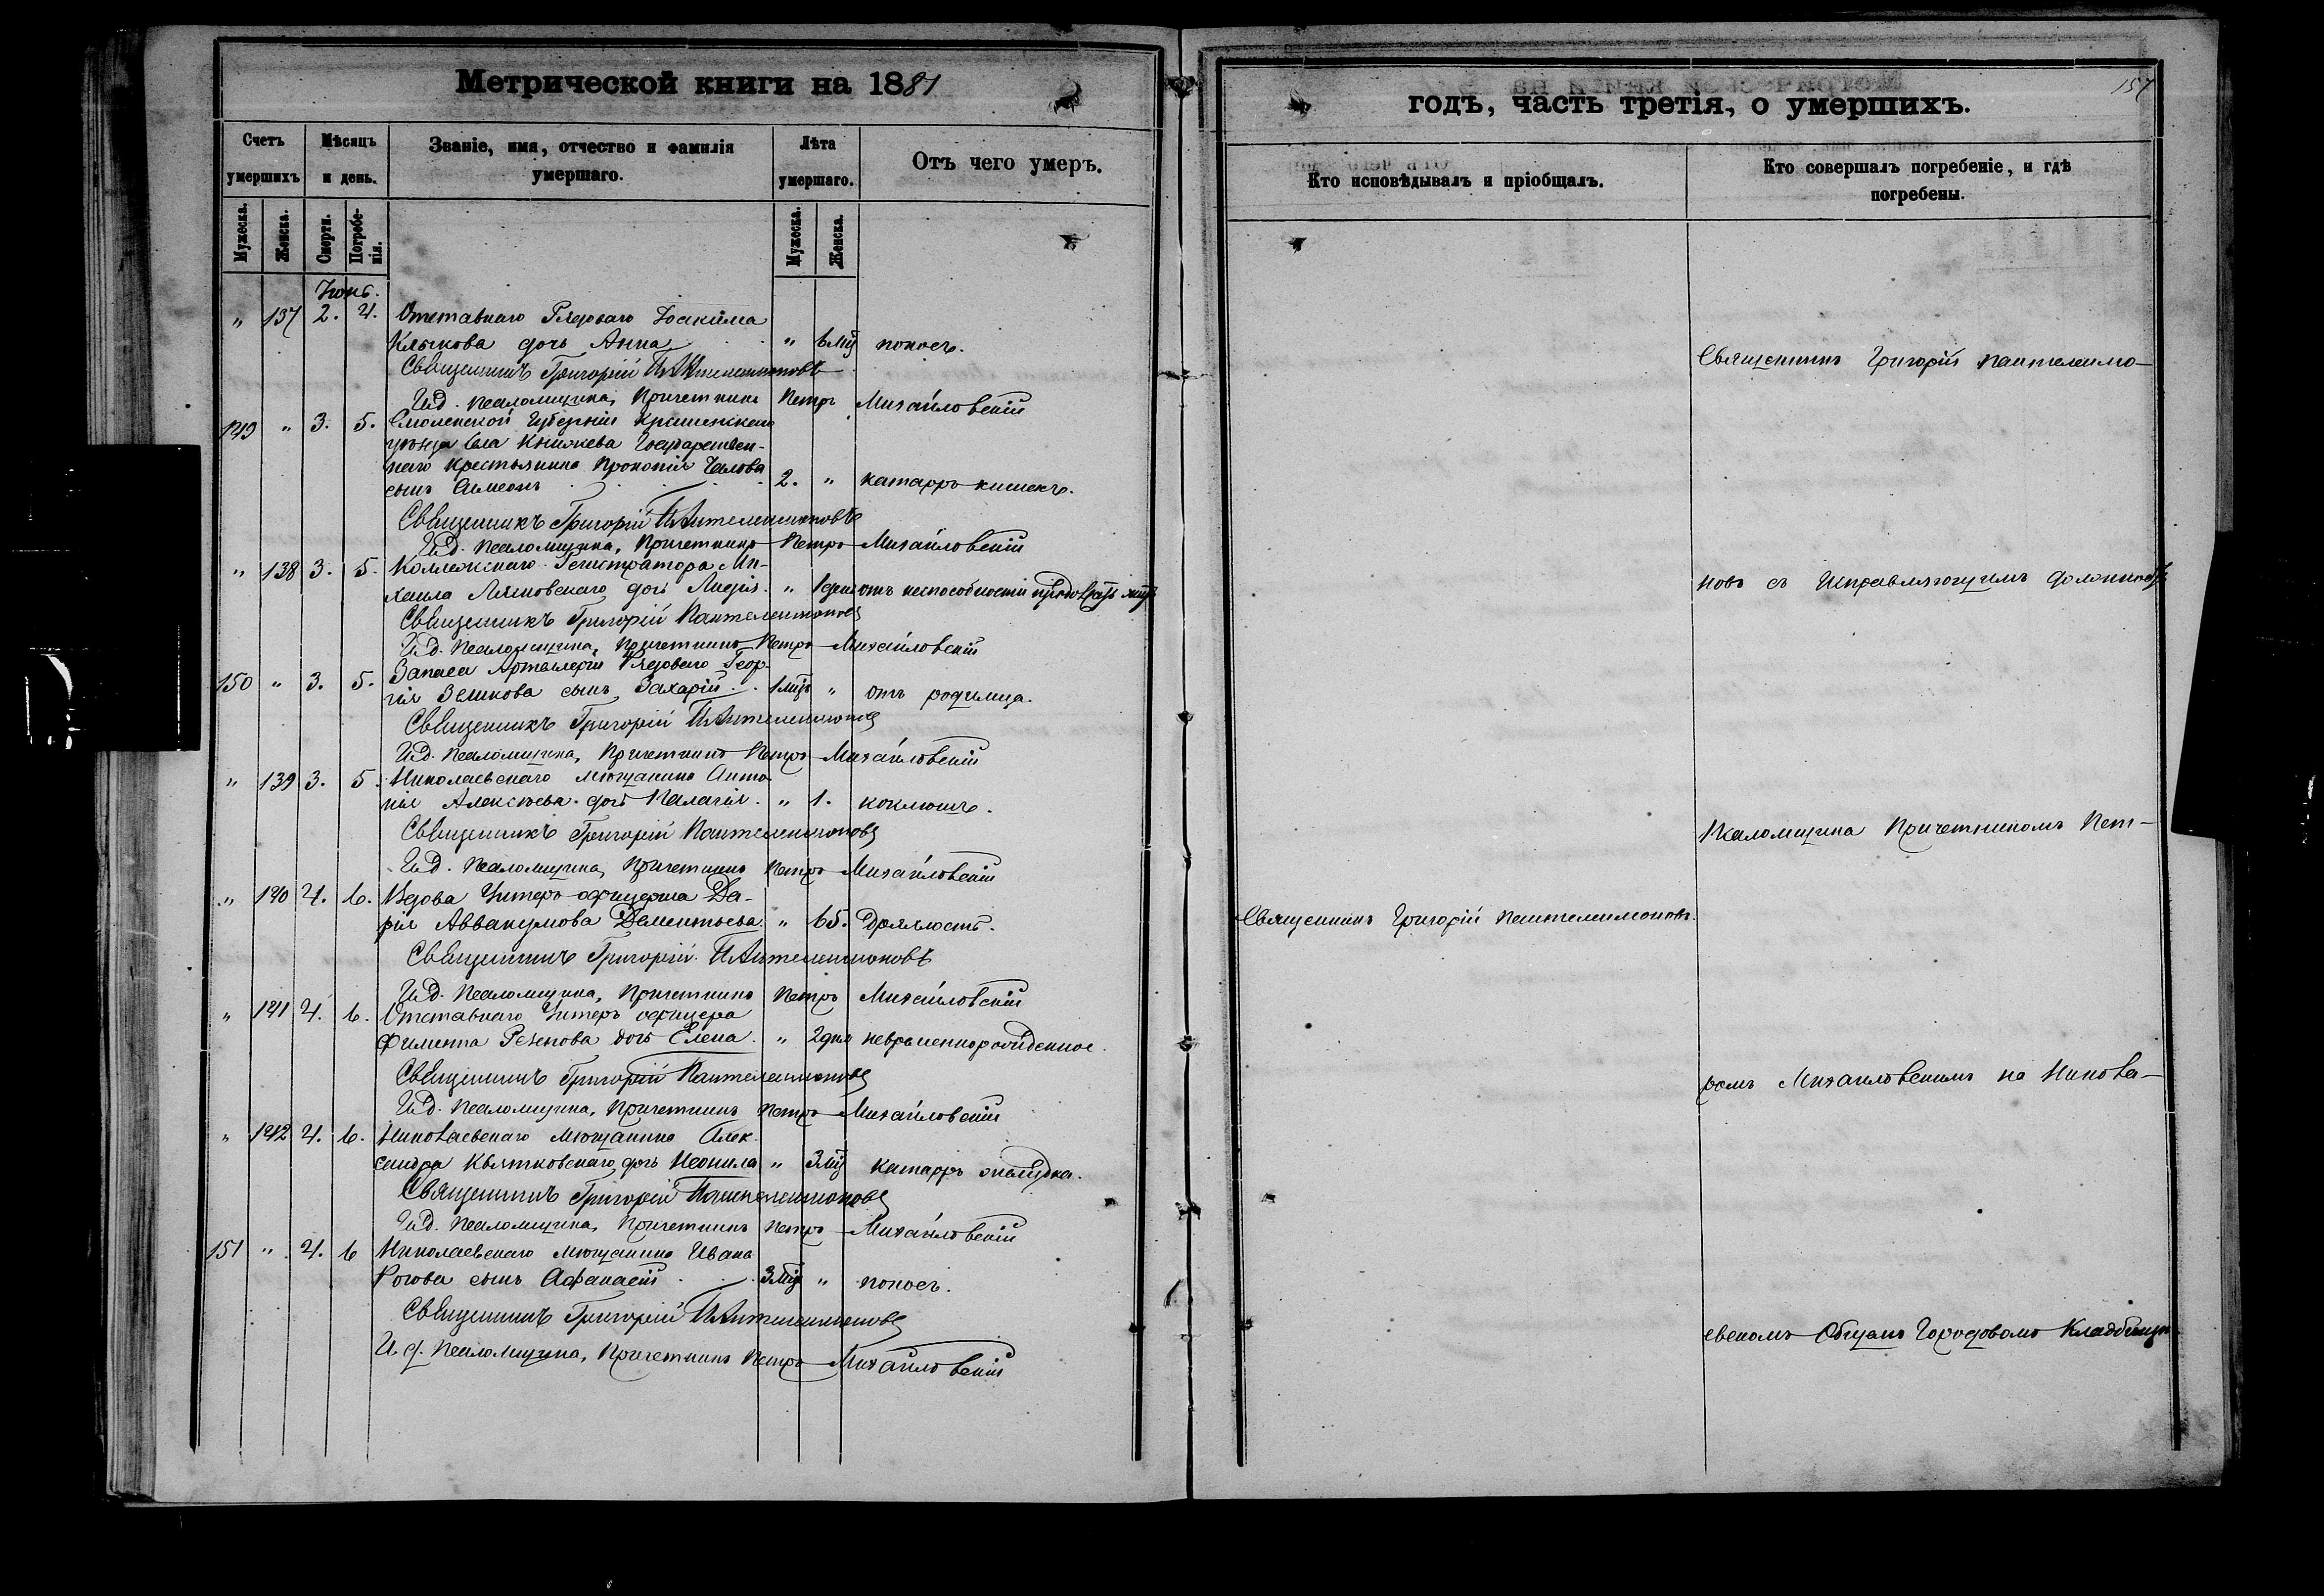 Метрической книги на 1881
Счетъ умершихъ
Мѣсяцъ и день.
Званіе, имя, отчество и фамилія умершаго.
Лѣта умершаго.
Отъ чего умеръ.
Мужеска. Женска. Смерти. Погребенія. Мужеска. Женска.
Іюнь.
" 137 2. 4. Отставнаго Рядоваго Іоакима
Клыкова дочь Анна " 6 мц поносъ.
Священникъ Григорій Пантелеимоновъ
И.д. псаломщика, Причетникъ Петръ Михайловскій
149 " 3. 5. Смоленской Губерніи
уѣзда Села Княжева Государствен-
наго Крестьянина Прокопія
сынъ Симеонъ 2. " катарръ кишекъ.
Священникъ Григорій Пантелеимоновъ
И.д. псаломщика, Причетникъ Петръ Михайловскій
" 138 3. 5. Коллежскаго Регистратора Ми-
хаила Ляшовскаго дочь Лидія. " 1 день отъ неспособности
Священникъ Григорій Пантелеимоновъ
И.д. псаломщика, Причетникъ Петръ Михайловскій
150 " 3. 5. Запаса Артиллеріи Рядоваго Геор-
гія Зеликова сынъ Захарій. 1 мцъ " отъ родимца.
Священникъ Григорій Пантелеимоновъ
И.д. псаломщика, Причетникъ Петръ Михайловскій
" 139 3. 5. Николаевскаго мѣщанина Анто-
нія Алексѣева дочь Пелагія. " 1. коклюшъ.
Священникъ Григорій Пантелеимоновъ
И.д. псаломщика, Причетникъ Петръ Михайловскій
" 140 4. 6. Вдова Унтеръ-офицерша Да-
рія Аввакумова Дементьева. " 65. Дряхлость.
Священникъ Григорій Пантелеимоновъ
И.д. псаломщика, Причетникъ Петръ Михайловскій
" 141 4. 6. Отставнаго Унтеръ офицера
Филиппа Резенова дочь Елена. " 2 дня невременнорожденное.
Священникъ Григорій Пантелеимоновъ
И.д. псаломщика, Причетникъ Петръ Михайловскій
" 142 4. 6. Николаевскаго мѣщанина Алек-
сандра Квятковскаго дочь Неонила " 3 мц катарръ желудка.
Священникъ Григорій Пантелеимоновъ
И.д. псаломщика, Причетникъ Петръ Михайловскій
151 " 4. 6 Николаевскаго мѣщанина Ивана
Рогова сынъ Афанасій 3 мц " поносъ.
Священникъ Григорій Пантелеимоновъ
И.д. псаломщика, Причетникъ Петръ Михайловскій
157
годъ, часть третія, о умершихъ.
Кто исповѣдывалъ и пріобщалъ.
Кто совершалъ погребеніе, и гдѣ погребены.
Священникъ Григорій Пантелеимо-
новъ съ Исправляющимъ должность
Псаломщика Причетникомъ Пет-
Священникъ Григорій Пантелеимоновъ.
ромъ Михайловскимъ на Никола-
евскомъ Общемъ Городовомъ Кладбищѣ